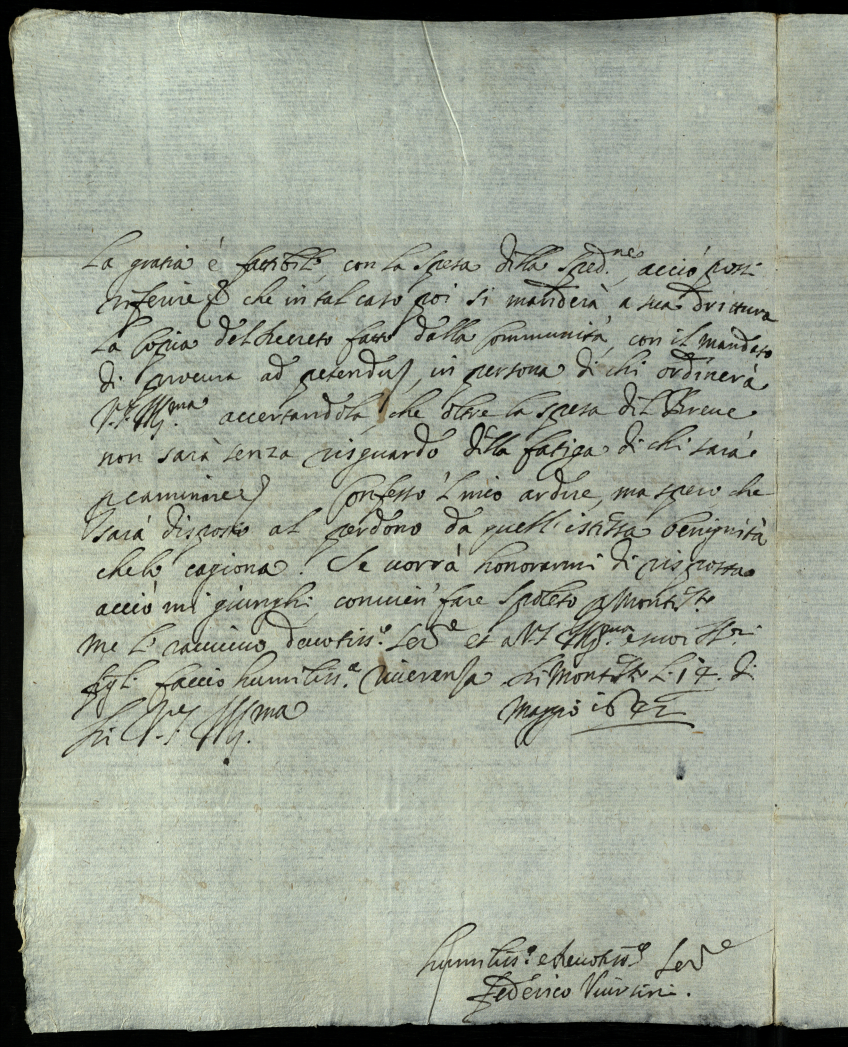 La gratia è fattibile, con la spesa della sped.ne, acciò possi
inferire che in tal caso poi si manderà a sua drittura
la Copia del decreto fatto dalla Communità, con il mandato
di procura ad petendu in persona di chi ordinerà
V.S. Ill.ma accertandola, che oltre la spesa del Breve
non sarà senza risguardo della fatiga di chi sarà
Confesso 'l mio ardire, ma spero che
sarà disposto al perdono da quell'istessa benignità
che lo cagiona. Se vorrà honorarmi di risposta
acciò mi giunghi, convien' fare Spoleto p
me le devotiss.o Ser.e et a V.S. Ill.ma e suoi SS.ri
figl. faccio humiliss.a riverenza Di li 14. di
Di V.S. Ill.ma Maggio 16
humiliss.o e devotiss.o Ser.e
Federico